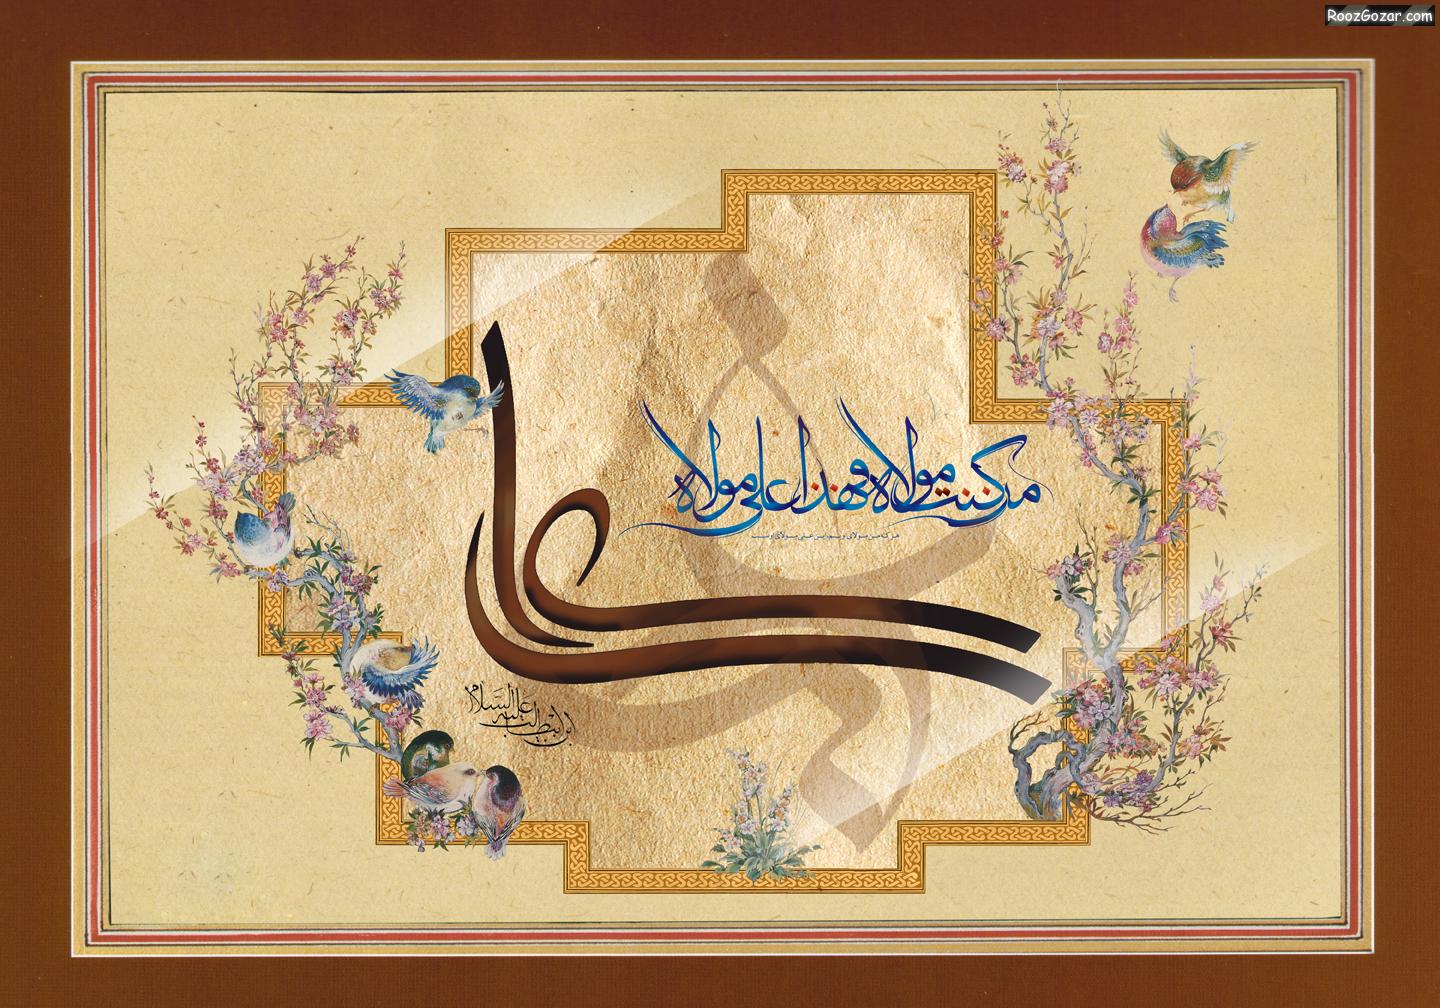 RoozGozar.com
من کنت مولاه فهذا علی مولاه
هر که من مولای ویم، این علی مولای اوست
علی
ابن ابیطالب علیه السلام